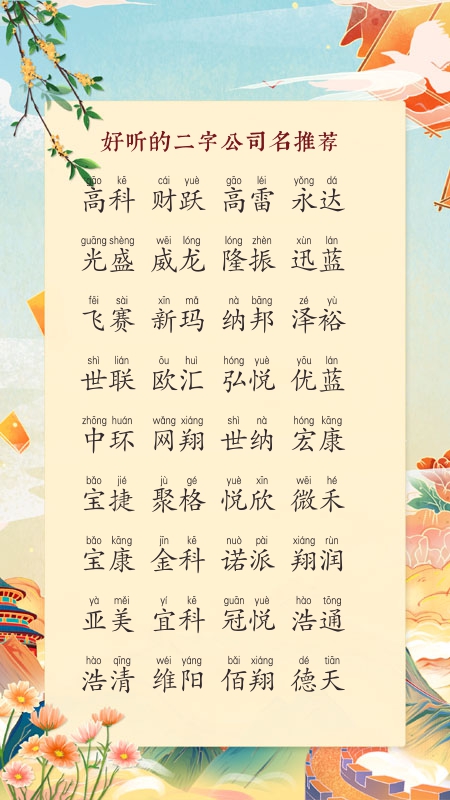 好听的二字公司名推荐
gāo kē cái yuè gāo léi yǒng dá
高科 财跃 高雷 永达
guāng shèng wēi lóng lóng zhèn xùn lán
光盛 威龙 隆振 迅蓝
fēi sài xīn mǎ nà bāng zé yù
飞赛 新玛 纳邦 泽裕
shì lián ōu huì hóng yuè yōu lán
世联 欧汇 弘悦 优蓝
zhōng huán wǎng xiáng shì nà hóng kāng
中环 网翔 世纳 宏康
bǎo jié jù gé yuè xīn wēi hé
宝捷 聚格 悦欣 微禾
bǎo kāng jīn kē nuò pài xiáng rùn
宝康 金科 诺派 翔润
yà měi yí kē guān yuè hào tōng
亚美 宜科 冠悦 浩通
hào qīng wéi yáng bǎi xiáng dé tiān
浩清 维阳 佰翔 德天